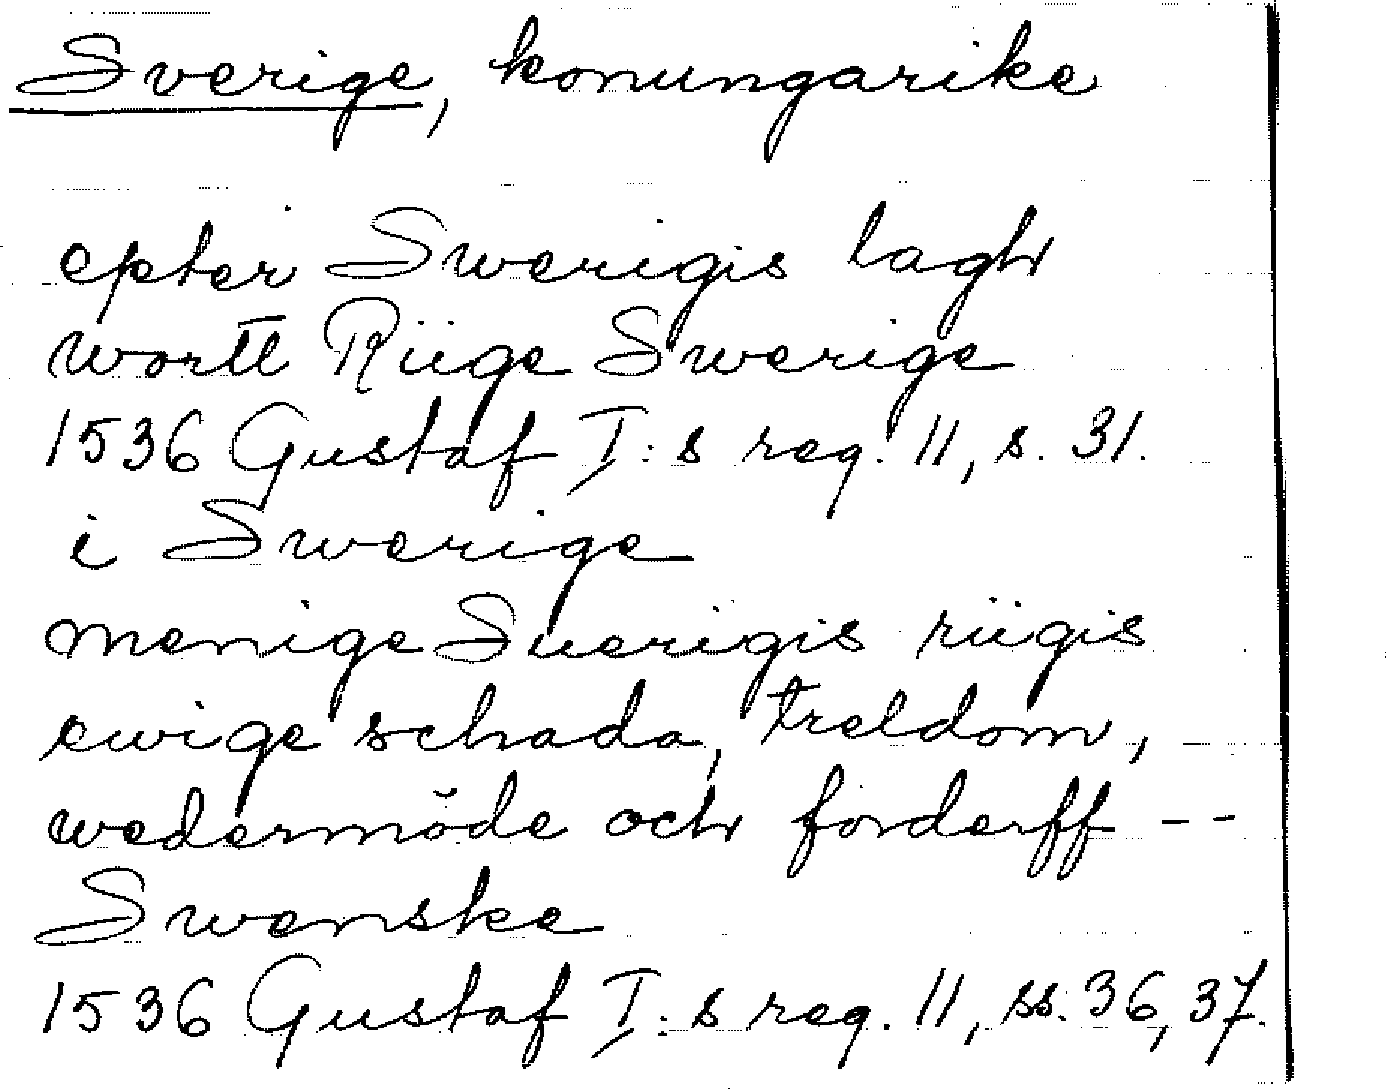 Sverige, konungarike
epter Swerigis lagh
wortt Riige Swerige
1536 Gustaf I:s reg. 11, s. 31.
i Swerige
menige Suerigis riigis
ewige schada, treldom,
wedermöde och forderff --
Swenske
1536 Gustaf I:s reg. 11, ss. 36, 37.